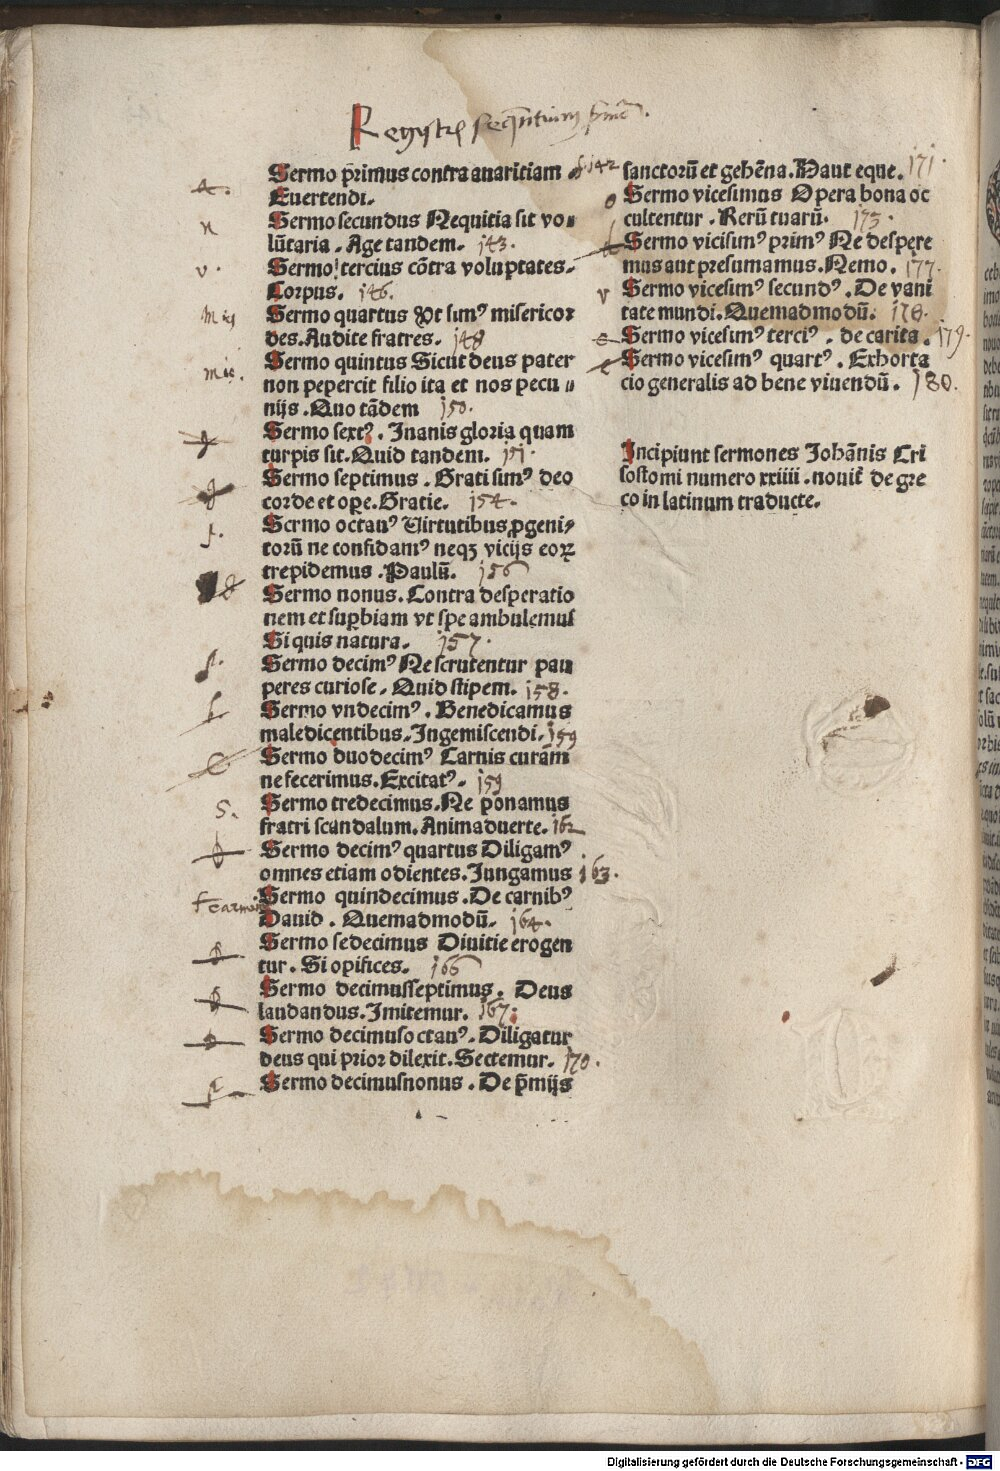 Registrū sequentium sermonū.
Sermo p̄rimus contra auaritiam f 142
Euertendi.
Sermo secundus Nequitia sit vo⸗
lūtaria. Age tandem. 143.
Sermo tercius cōtra voluptates.
Corpus. 146.
Sermo quartus Ut simꝰ misericor
des. Audite fratres. 148
Sermo quintus Sicut deus pater
non pepercit filio ita et nos pecu⸗
nijs. Quo tādem 150.
Sermo sextꝰ. Inanis gloria quam
turpis sit. Quid tandem. 151.
Sermo septimus. Grati simꝰ deo
corde et oꝑe. Gratie. 154.
Sermo octauꝰ Virtutibus ꝓgeni⸗
torū ne confidamꝰ neqꝫ vicijs eoꝝ
trepidemus. Paulū. 156
Sermo nonus. Contra desperatio
nem et suꝑbiam vt spe ambulemus
Si quis natura. 157.
Sermo decimꝰ Ne scrutentur pau
peres curiose. Quid stipem. 158.
Sermo vndecimꝰ. Benedicamus
maledicentibus. Ingemiscendi. 159
Sermo duodecimꝰ Carnis curam
ne fecerimus. Excitatꝰ. 159
Sermo tredecimus. Ne ponamus
fratri scandalum. Animaduerte. 162
Sermo decimꝰ quartus Diligamꝰ
omnes etiam odientes. Iungamus 163.
Sermo quindecimus. De carnibꝰ
Dauid. Quemadmodū. 164.
Sermo sedecimus Diuitie erogen
tur. Si opifices. 166
Sermo decimusseptimus. Deus
laudandus. Imitemur. 167.
Sermo decimusoctauꝰ. Diligatur
deus qui prior dilexit. Sectemur. 170.
Sermo decimusnonus. De p̄mijs
sanctorū et gehēna. Haut eque. 171.
Sermo vicesimus Opera bona oc
cultentur. Rerū tuarū. 175.
Sermo vicisimꝰ primꝰ Ne despere
mus aut presumamus. Nemo. 177.
Sermo vicesimꝰ secundꝰ. De vani
tate mundi. Quemadmodū. 178.
Sermo vicesimꝰ terciꝰ. de carita. 179.
Sermo vicesimꝰ quartꝰ. Exhorta
cio generalis ad bene viuendū. 180.
Incipiunt sermones Johānis Cri
sostomi numero xxiiii. nouiť de gre
co in latinum traducte.
Digitalisierung gefördert durch die Deutsche Forschungsgemeinschaft - DFG